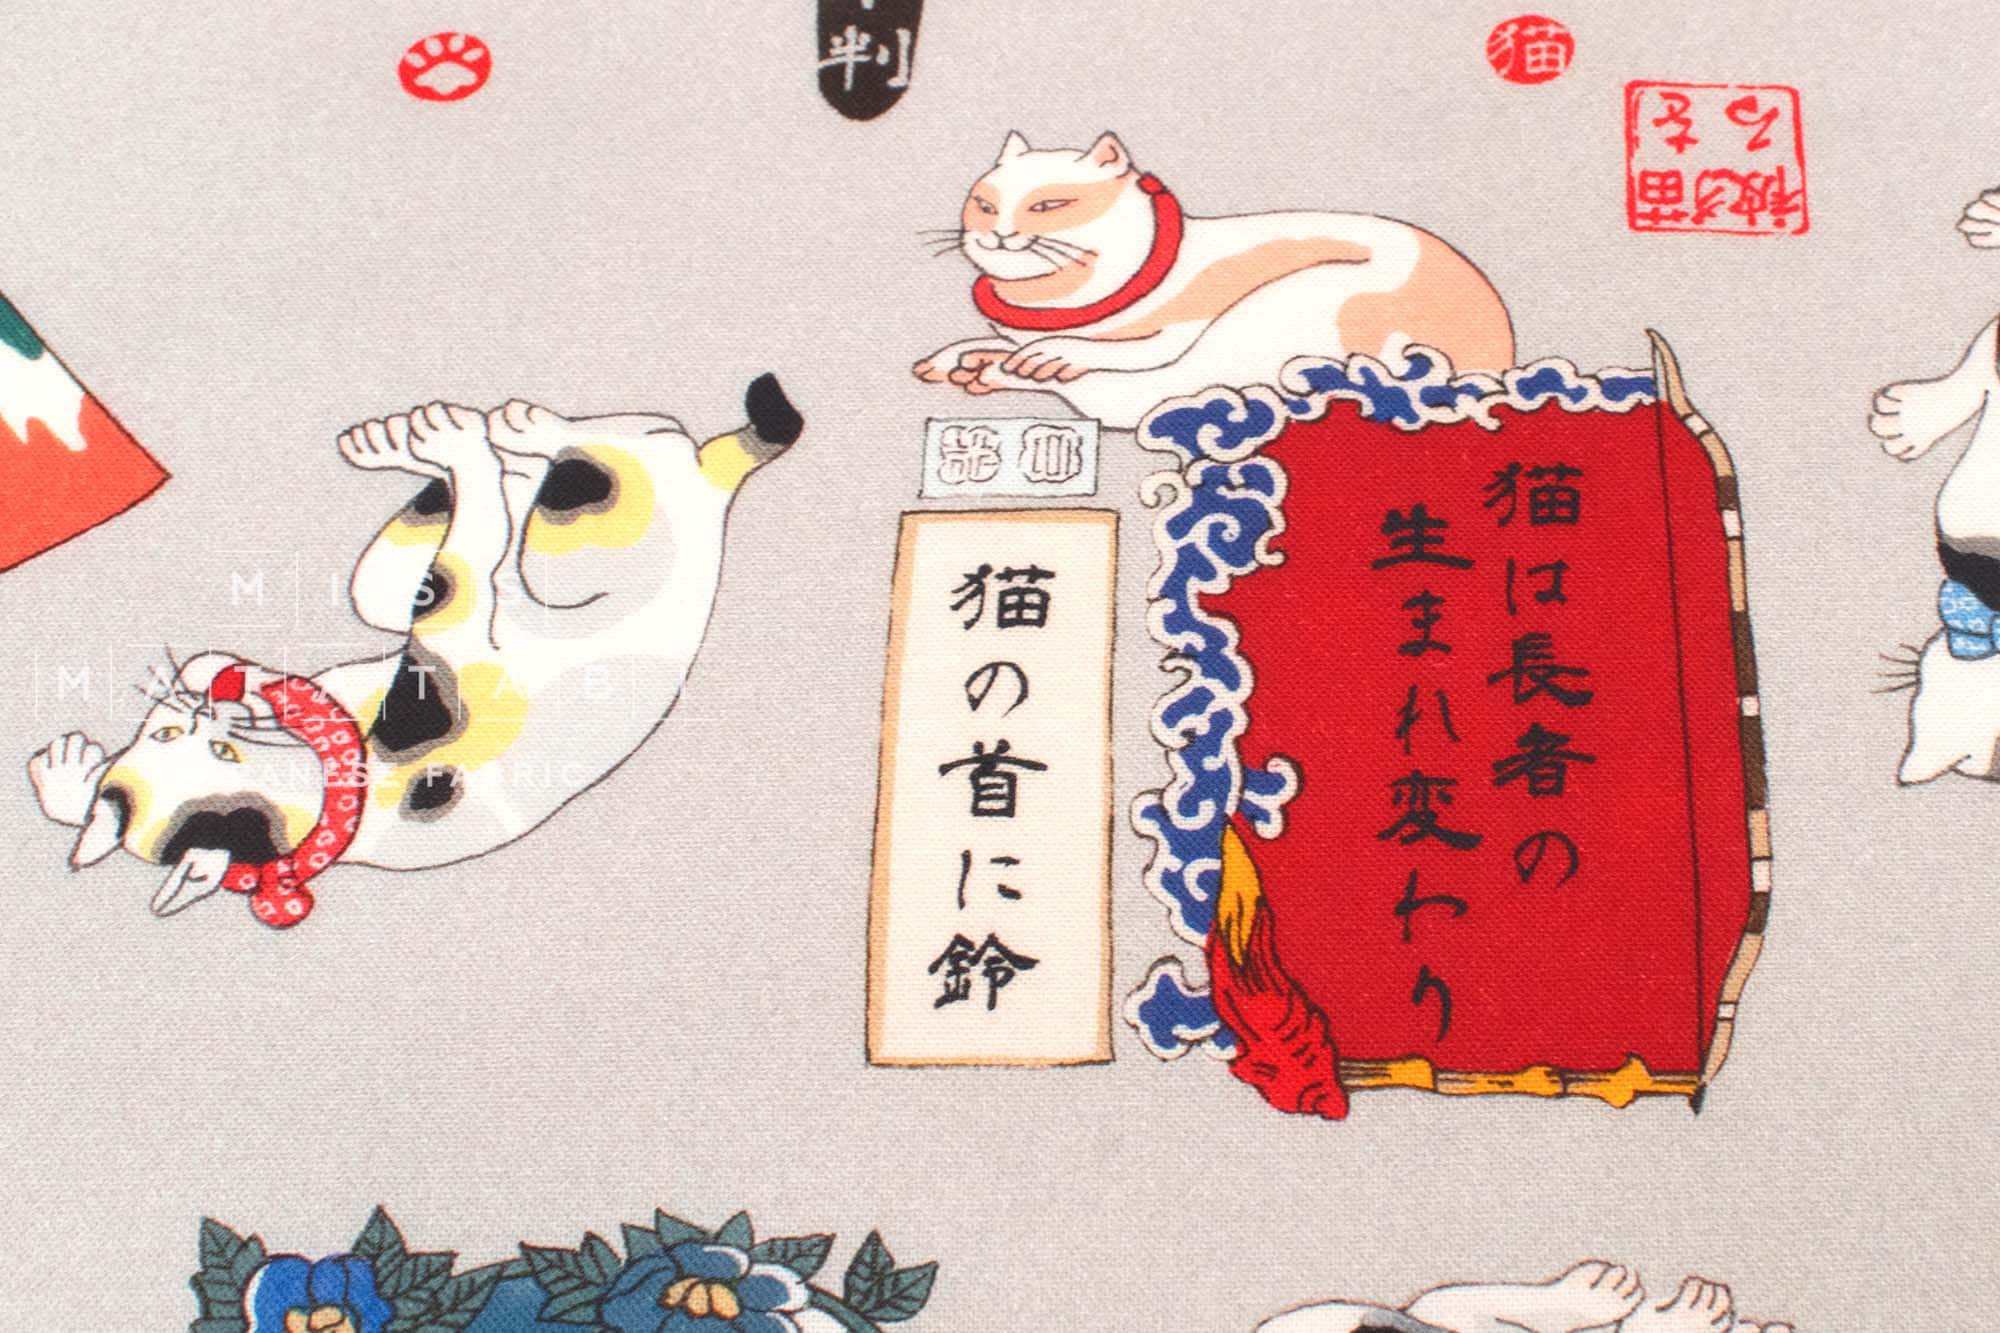 判
猫
猫を
被る
猫は長者の
生まれ変わり
猫の首に鈴
MISS
MATATABI
JAPANESE FABRIC